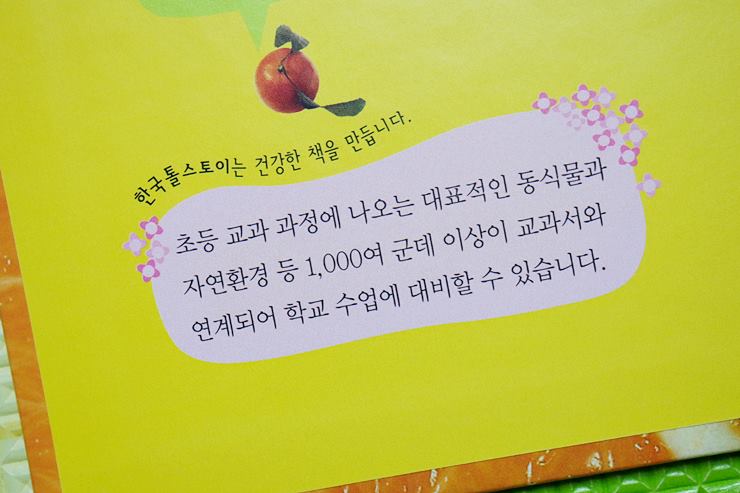 한국톨스토이는 건강한 책을 만듭니다.
초등 교과 과정에 나오는 대표적인 동식물과
자연환경 등 1,000여 군데 이상이 교과서와
연계되어 학교 수업에 대비할 수 있습니다.